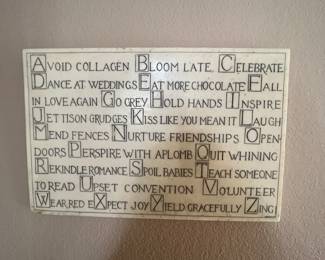 AVOID COLLAGEN BLOOM LATE CELEBRATE
DANCE AT WEDDINGS EAT MORE CHOCOLATE FALL
IN LOVE AGAIN GO GREY HOLD HANDS INSPIRE
JETTISON GRUDGES KISS LIKE YOU MEAN IT LAUGH
MEND FENCES NURTURE FRIENDSHIPS OPEN
DOORS PERSPIRE WITH APLOMB QUIT WHINING
REKINDLE ROMANCE SPOIL BABIES TEACH SOMEONE
TO READ UPSET CONVENTION VOLUNTEER
WEAR RED EXPECT JOY YIELD GRACEFULLY ZING